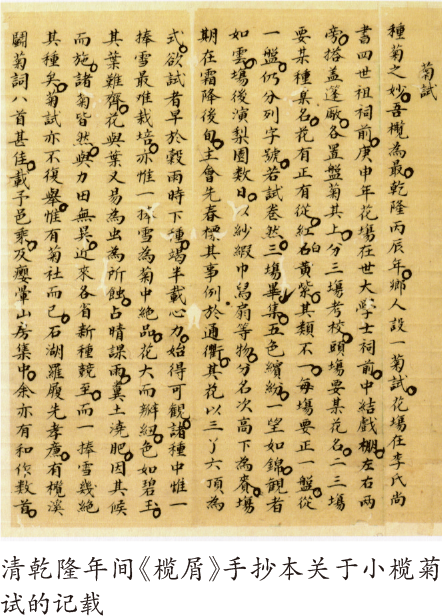 菊試
種菊之妙吾欖為最乾隆丙辰年鄉人設一菊試花塲在李氏尚
書四世祖祠前庚申年花塲在世大學士祠前中結戲棚左右兩
旁搭盖蓬厰各置盤菊其上分三塲考校頭塲要某花名二三塲
要某種某名花有正有從紅白黃紫其類不一每塲要正一盤從
一盤仍分列字號若試卷然三塲畢集五色繽紛一望如錦觀者
如雲塲後演梨園數日以紗緞巾舄扇等物分名次高下為賚塲
期在霜降後旬主會先春標其事例於通衢其花以三丫六頂為
式欲試者早於穀雨時下種竭半載心力始得可觀諸種中惟一
捧雪最难栽培亦惟一捧雪為菊中絕品花大而瓣紐色如碧玉
其葉難齊花與葉又易為虫為所蝕占晴課雨糞土澆肥因其候
而施諸菊皆然與力田無異近來各省新種競至而一捧雪幾絕
其種矣菊試亦不復舉惟有菊社而已石湖羅履先孝廉有欖溪
鬭菊詞八首甚佳載予邑乘及癭暈山房集中余亦有和作数首
清乾隆年间《榄屑》手抄本关于小榄菊
试的记载